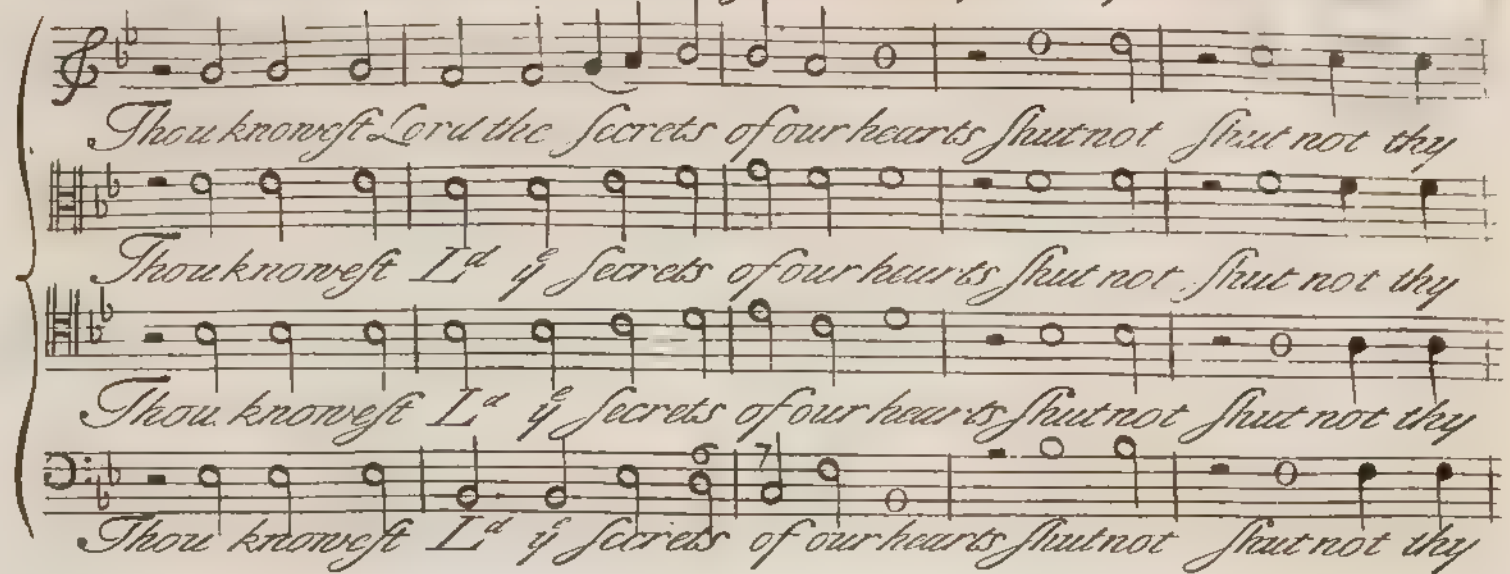 Thou knoweſt Lord the ſecrets of our hearts ſhut not ſhut not thy
Thou knoweſt Lᵈ yᵉ ſecrets of our hearts ſhut not ſhut not thy
Thou knoweſt Lᵈ yᵉ ſecrets of our hearts ſhut not ſhut not thy
6 7
Thou knoweſt Lᵈ yᵉ ſecrets of our hearts ſhut not ſhut not thy